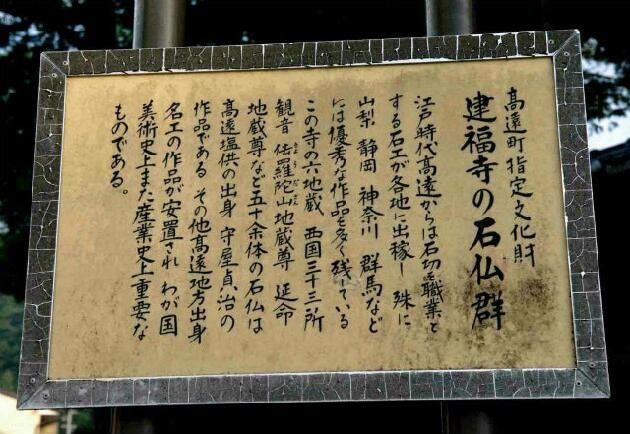 高遠町指定文化財
建福寺の石仏群
江戸時代高遠からは石切を職業と
する石工が各地に出稼し 殊に
山梨 静岡 神奈川 群馬など
には優秀な作品を多く残している
この寺の六地蔵 西国三十三所
観音 佉羅陀山地蔵尊 延命
地蔵尊など五十余体の石仏は
高遠塩供の出身 守屋貞治の
作品である その他高遠地方出身
名工の作品が安置され わが国
美術史上また産業史上重要な
ものである。